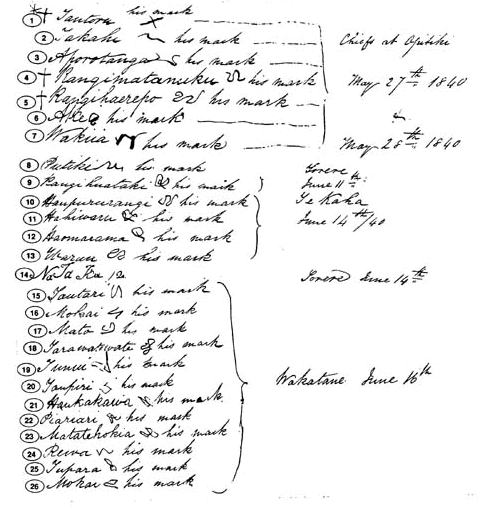 1 † Tautoru his mark
2 Takahi his mark Chiefs at Opitiki
3 Aporotanga his mark
4 † Rangimatanuku his mark May 27th 1840
5 † Rangihaerepo his mark
6 Ake his mark
7 Wakiia his mark May 28th 1840
8 Putiki his mark Torere
9 Rangihuataki his mark June 11th
10 Haupururangi his mark Te Kaha
11 Hahiwaru his mark June 14th/40
12 Haomarama his mark
13 Warau his mark
14 Na Ta Ku Torere June 14th
15 Tautari his mark
16 Mokai his mark
17 Mato his mark
18 Tarawatewate his mark
19 Tunui his mark
20 Taupiri his mark
21 Haukakawa his mark
22 Piariari his mark
23 Matatehokia his mark
24 Rewa his mark
25 Tupara his mark
26 Mokai his mark
Wakatane June 16th